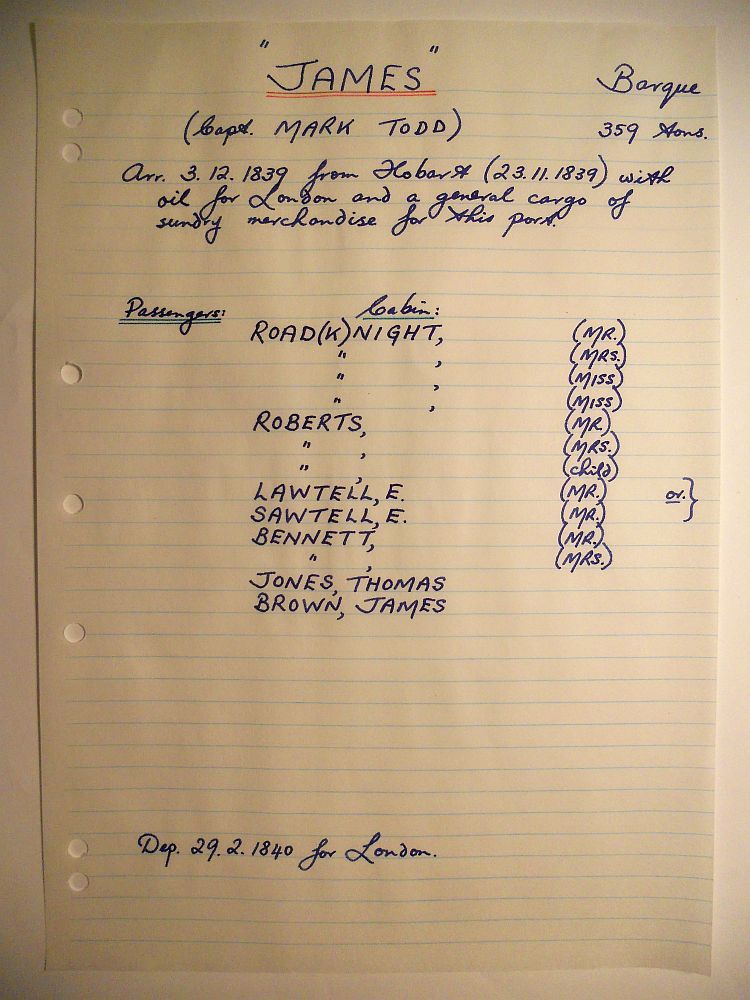 "JAMES" Barque
(Capt. MARK TODD) 359 tons.
Arr. 3.12.1839 from Hobart (23.11.1839) with
oil for London and a general cargo of
sundry merchandise for this port.
Passengers: Cabin:
ROAD(K)NIGHT, (MR.)
" , (MRS.)
" , (MISS)
" , (MISS)
ROBERTS, (MR.)
" , (MRS.)
" , (child)
LAWTELL, E. (MR.) or. }
SAWTELL, E. (MR.)
BENNETT, (MR.)
" , (MRS.)
JONES, THOMAS
BROWN, JAMES
Dep. 29.2.1840 for London.